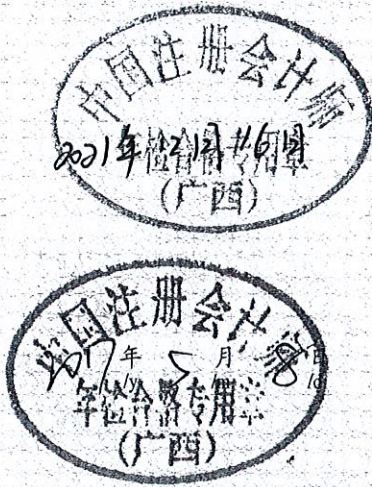 中国注册会计师
2021年检合格专用章
(广西)
中国注册会计师
2017年5月8日
年检合格专用章
(广西)